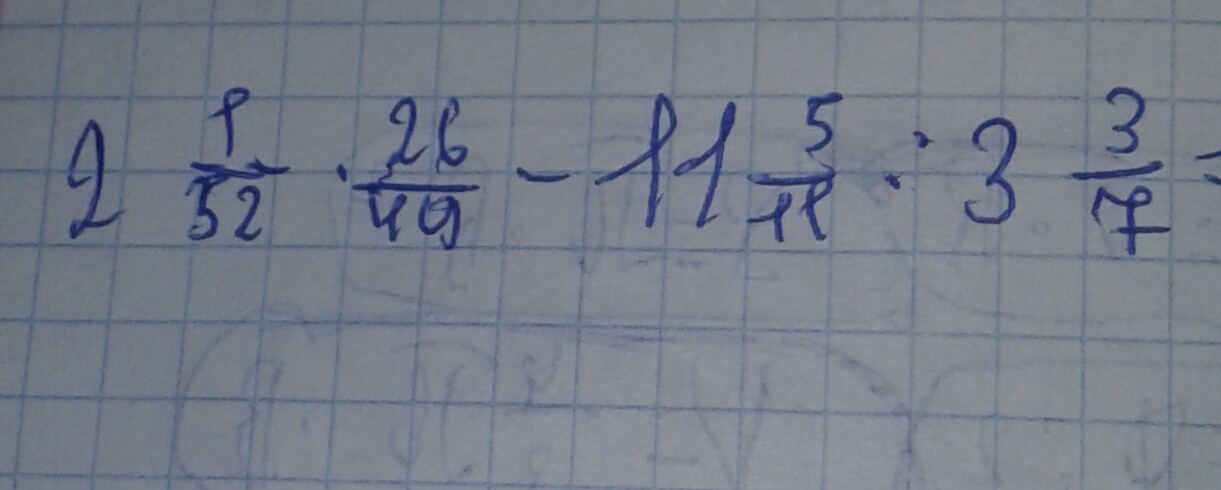 2 1/52 · 26/49 - 11 5/11 : 3 3/7 =